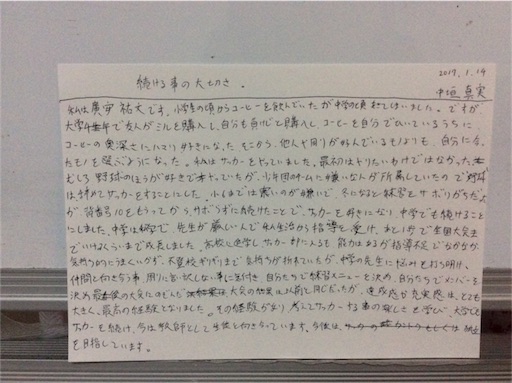 続ける事の大切さ。
2017.1.19
中垣真実
私は廣安祐文です。小学生の頃からコーヒーを飲んでいたが中学の頃
ですが、
大学4年で友人がミルを購入し、自分も負けじと購入し、コーヒーを自分でひいているうちに
コーヒーの奥深さにハマり好きになった。そこから、他人や周りが好んでいるものよりも、自分に合っ
たモノを選ぶようになった。私はサッカーをやっていました。最初はやりたいわけではなかった。
むしろ野球のほうが好きで
少年団のチームに嫌いな人が所属していたので野球
は辞めてサッカーをすることにした。小6までは寒いのが嫌いで、冬になると練習をサボりがちだった
が、背番号10をもらってから、サボらずに続けたことで、サッカーを好きになり、中学でも続けることに
にしました。中学は
で、先生が厳しい人で私生活から指導を受け、あと1歩で全国大会ま
でいけるくらいまで成長しました。高校に進学し、サッカー部に入るも、能力はあるが指導不足でなかなか
気持ち的にうまくいかず、不登校ギリギリまで気持ちが折れていたが、中学の先生に悩みを打ち明け、
仲間と向き合う事、周りに
自分たちで練習メニューを決め、自分たちでメンバーを
決め最後の大会にはどんだ
大会の結果は以前と同じだったが、達成感や充実感は、とても
大きく、最高の経験となりました。その経験があり
サッカーする事の楽しさを学び、大学でも
サッカーを続け、今は教師として生徒と向き合っています。今後は、
を目指しています。